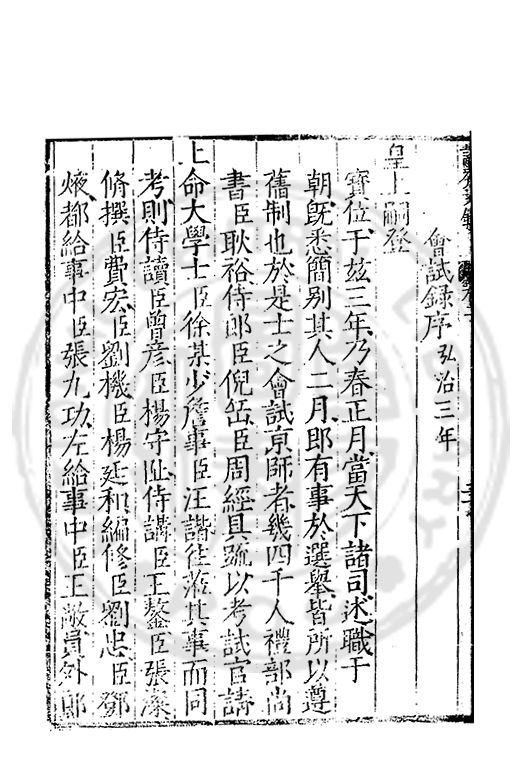 會試錄序弘治三年
皇上嗣登
寳位于玆三年乃春正月當天下諸司述職于
朝旣悉簡别其人二月卽有事於選舉皆所以遵
舊制也於是士之會試京師者幾四千人禮部尚
書臣耿裕侍郎臣倪岳臣周經具䟽以考試官請
上命大學士臣徐某少詹事臣汪諧徃涖其事而同
考則侍讀臣曾彦臣楊守阯侍講臣王鏊臣張澯
脩撰臣費宏臣劉機臣楊廷和編修臣劉忠臣鄧
焲都給事中臣張九功左給事中臣王敞員外郎